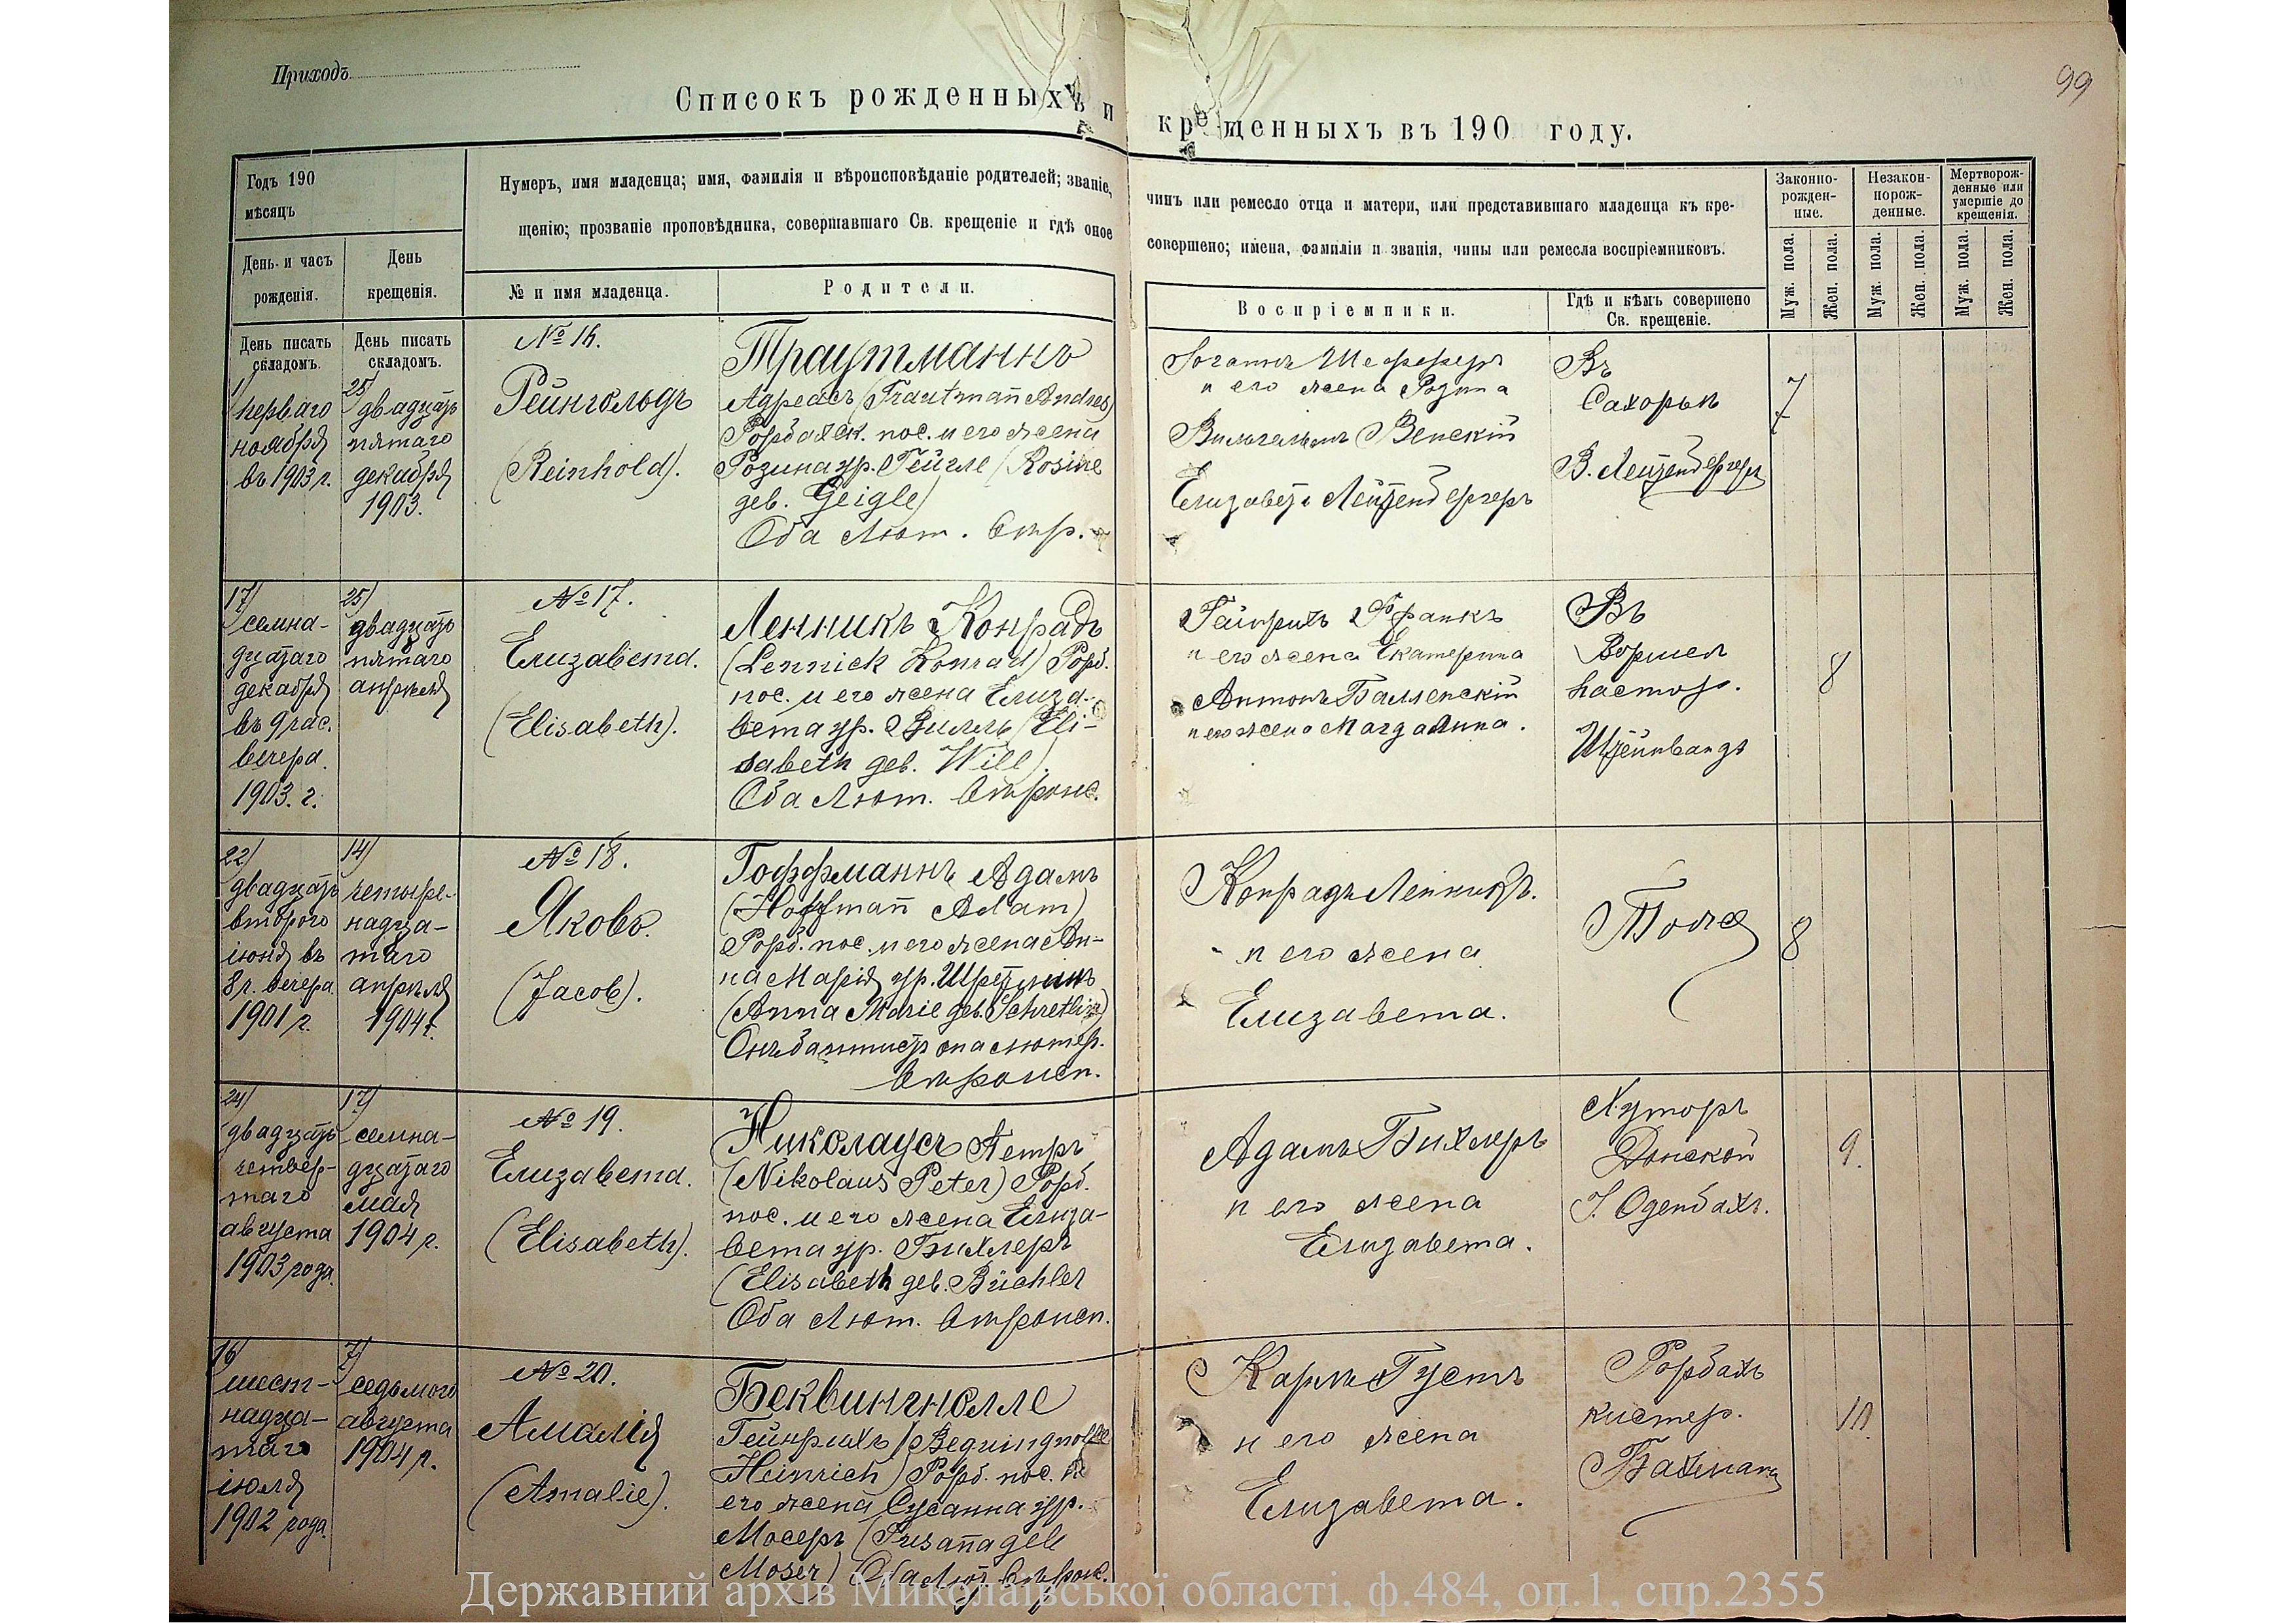 Приходъ
99
Списокъ рожденныхъ и крещенныхъ въ 190 году.
Годъ 190
мѣсяцъ
День и часъ
рожденія.
День
крещенія.
Нумеръ, имя младенца; имя, фамилія и вѣроисповѣданіе родителей; званіе,
щенію; прозваніе проповѣдника, совершавшаго Св. крещеніе и гдѣ оное
№ и имя младенца.
Родители.
чинъ или ремесло отца и матери, или представившаго младенца къ кре-
совершено; имена, фамиліи и званія, чины или ремесла воспріемниковъ.
Воспріемники.
Гдѣ и кѣмъ совершено
Св. крещеніе.
Законно-
рожден-
ные.
Незакон-
норож-
денные.
Мертворож-
денные или
умершіе до
крещенія.
Муж. пола.
Жен. пола.
Муж. пола.
Жен. пола.
Муж. пола.
Жен. пола.
День писать
складомъ.
День писать
складомъ.
1)
перваго
ноября
въ 1903 г.
25)
двадцать
пятаго
декабря
1903.
№ 16.
Рейнгольдъ
(Reinhold).
Траутманнъ
Адреасъ (Trautmann Andres)
Рорбахск. пос. и его жена
Розина ур. Гейгле (Rosine
geb. Geigle)
Оба Лют. вѣр.
Іоганнъ Шефферъ
и его жена Розина
Вильгельмъ Венскій
Елизавета Лейценбергеръ
Въ
Сахорьи
В. Лейценбергеръ
7
17)
семна-
дцатаго
декабря
въ 9 час.
вечера.
1903. г.
25)
двадцать
пятаго
апрѣля
№ 17.
Елизавета.
(Elisabeth).
Ленникъ Конрадъ
(Lennick Konrad) Рорб.
пос. и его жена Елиза-
вета ур. Вилль (Eli-
sabeth geb. Will)
Оба Лют. вѣроис.
Гейнрихъ Франкъ
и его жена Екатерина
Антонъ Балленскій
и его жена Магдалина.
Въ
Вормсѣ
пастор.
Штейнвандъ
8
22)
двадцать
второго
іюня въ
8 ч. вечера
1901 г.
14)
четыре-
надца-
таго
апрѣля
1904 г.
№ 18.
Яковъ.
(Jacob).
Гоффманнъ Адамъ
(Hoffmann Adam)
Рорб. пос. и его жена Ан-
на Марія ур.
(Anna Marie geb.
Онъ баптистъ она лютер.
вѣроисп.
Конрадъ Ленникъ.
и его жена
Елизавета.
Тоже
8
24)
двадцать
четвер-
таго
августа
1903 года.
17)
семна-
дцатаго
мая
1904 г.
№ 19.
Елизавета.
(Elisabeth).
Николаусъ Петръ
(Nikolaus Peter) Рорб.
пос. и его жена Елиза-
вета ур. Бихлеръ
(Elisabeth geb. Büchler
Оба Лют. вѣроисп.
Адамъ Бихлеръ
и его жена
Елизавета.
Хуторъ
Донской
І. Оденбахъ.
9.
16)
шест-
надца-
таго
іюля
1902 года.
7)
седьмого
августа
1904 г.
№ 20.
Амалія
(Amalie).
Беквингнолле
Гейнрихъ (Bequingnolle
Heinrich) Рорб. пос. и
его жена Сусанна ур.
Мосеръ (Susanna geb
Moser) Оба Лют. вѣроис.
Карлъ Густъ
и его жена
Елизавета.
Рорбахъ
кистер.
Бахманъ
10.
Державний архів Миколаївської області, ф.484, оп.1, спр.2355